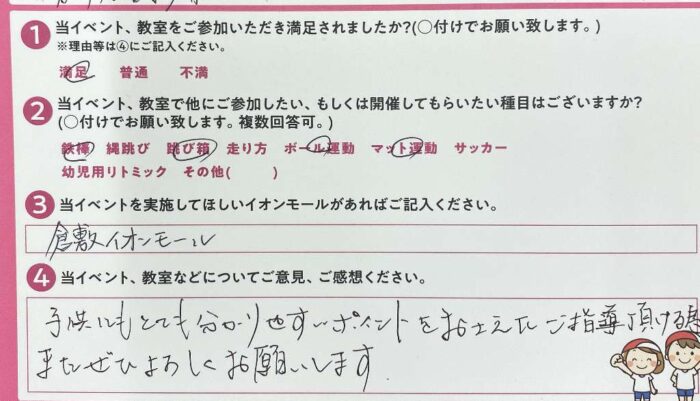 1 当イベント、教室をご参加いただき満足されましたか?(○付けでお願い致します。)
※理由等は④にご記入ください。
満足 普通 不満
2 当イベント、教室で他にご参加したい、もしくは開催してもらいたい種目はございますか?
(○付けでお願い致します。複数回答可。)
鉄棒 縄跳び 跳び箱 走り方 ボール運動 マット運動 サッカー
幼児用リトミック その他( )
3 当イベントを実施してほしいイオンモールがあればご記入ください。
倉敷イオンモール
4 当イベント、教室などについてご意見、ご感想ください。
子供にもとても分かりやすいポイントをおさえたご指導頂ける
またぜひよろしくお願いします